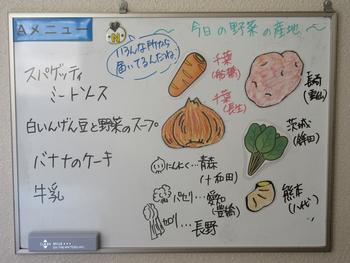 Aメニュー
いろんな所から
届いてるんだね!
～今日の野菜の産地～
スパゲッティ
ミートソース
白いんげん豆と野菜のスープ
バナナのケーキ
牛乳
千葉
(船橋)
千葉
(長生)
長崎
(雲仙)
茨城
(鉾田)
にんにく…青森
(十和田)
パセリ…愛知
(豊橋)
セロリ…長野
熊本
(八代)